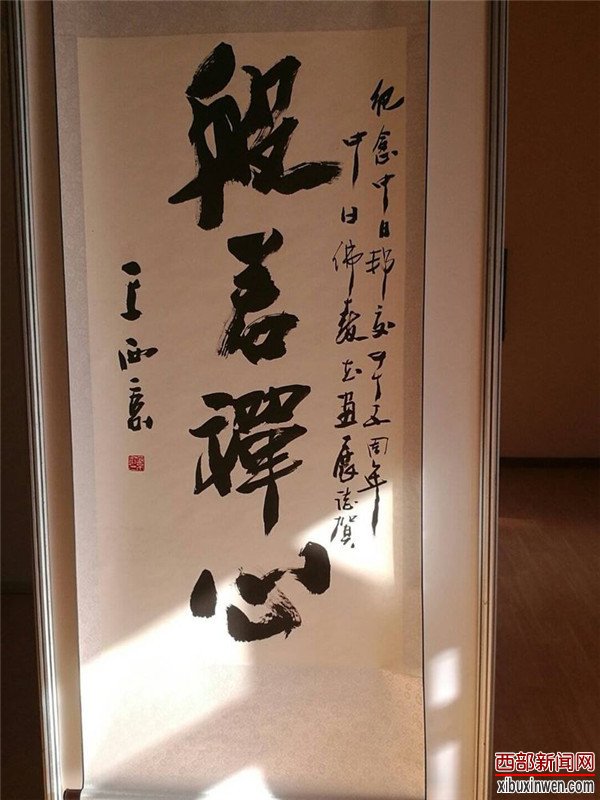 紀念中日邦交四十五周年
中日佛教书画展誌賀
般若禪心
西部新闻网
xibuxinwen.com